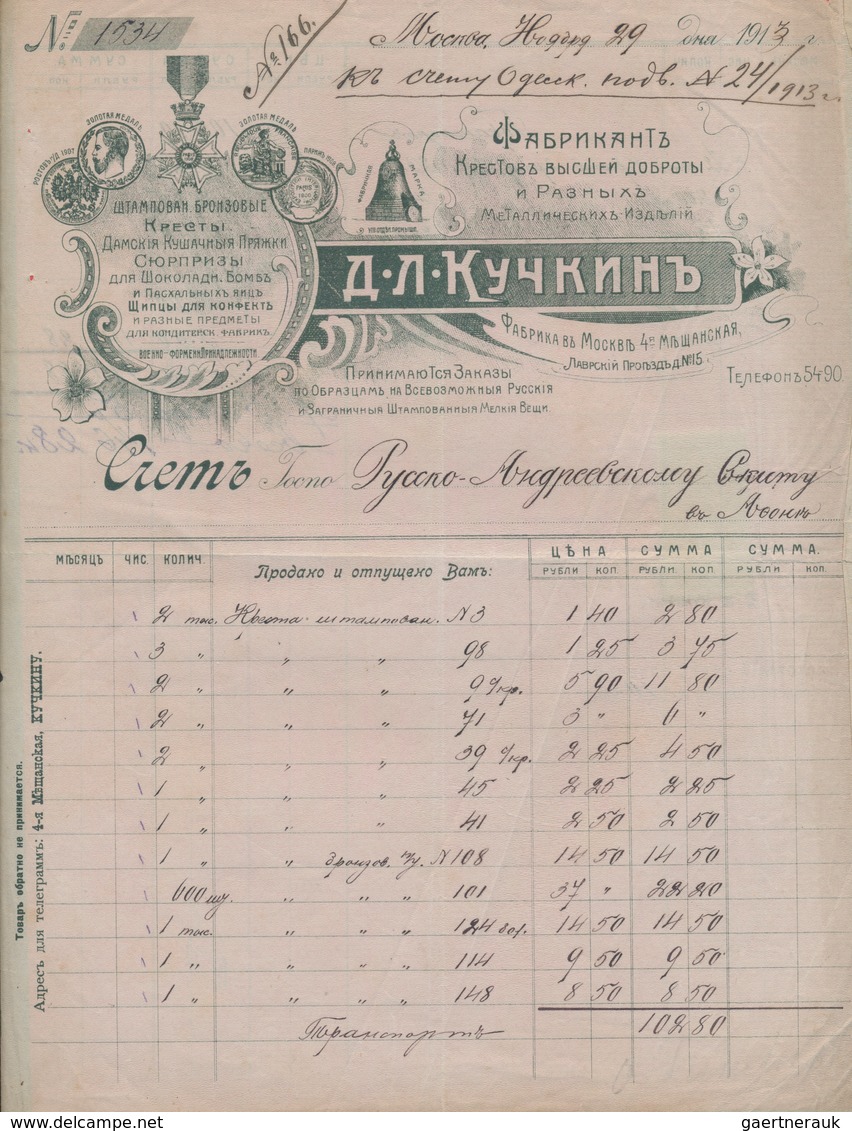 № 1534
№ 166.
Москва, Ноября 29 дня 1913 г.
Къ счету Одесск. подв. N 24/1913 г.
РОСТОВЪ Н/Д 1907
ЗОЛОТАЯ МЕДАЛЬ
ЗОЛОТАЯ МЕДАЛЬ
PARIS 1906
ФАБРИЧНАЯ МАРКА
ФАБРИКАНТЪ
КРЕСТОВЪ ВЫСШЕЙ ДОБРОТЫ
И РАЗНЫХЪ
МЕТАЛЛИЧЕСКИХЪ ИЗДѢЛІЙ
Д•Л•КУЧКИНЪ
ФАБРИКА ВЪ МОСКВѢ 4Я МѢЩАНСКАЯ,
ЛАВРСКІЙ ПРОѢЗДЪ Д. №15.
ТЕЛЕФОНЪ 54-90.
ШТАМПОВАН. БРОНЗОВЫЕ
КРЕСТЫ
ДАМСКІЯ КУШАЧНЫЯ ПРЯЖКИ
СЮРПРИЗЫ
ДЛЯ ШОКОЛАДН. БОМБЪ
И ПАСХАЛЬНЫХЪ ЯИЦЪ
ЩИПЦЫ ДЛЯ КОНФЕКТЪ
И РАЗНЫЕ ПРЕДМЕТЫ
ДЛЯ КОНДИТЕРСК. ФАБРИК.
ВОЕННО-ФОРМЕН. ПРИНАДЛЕЖНОСТИ
ПРИНИМАЮТСЯ ЗАКАЗЫ
ПО ОБРАЗЦАМЪ, НА ВСЕВОЗМОЖНЫЯ РУССКІЯ
И ЗАГРАНИЧНЫЯ ШТАМПОВАННЫЯ МЕЛКІЯ ВЕЩИ.
Счетъ Госпо Русско-Андреевскому Скиту
въ Афонѣ
МѢСЯЦЪ ЧИС. КОЛИЧ. Продано и отпущено Вамъ: ЦѢНА СУММА СУММА.
РУБЛИ КОП. РУБЛИ КОП. РУБЛИ КОП.
2 тыс. Креста штампован. N 3 1 40 2 80
3 " " " 98 1 25 3 75
2 " " " 9 с/кр. 5 90 11 80
2 " " " 71 3 " 6 "
2 " " " 39 с/кр. 2 25 4 50
1 " " " 45 2 25 2 25
1 " " " 41 2 50 2 50
1 " " бронзов. N 108 14 50 14 50
600 шт. " " " 101 37 " 22 20
1 тыс. " " " 124 14 50 14 50
1 " " " " 114 9 50 9 50
1 " " " " 148 8 50 8 50
Транспортъ 102 80
Товаръ обратно не принимается.
Адресъ для телеграммъ: 4-я Мѣщанская, КУЧКИНУ.
delcampe.net
gaertnerauk